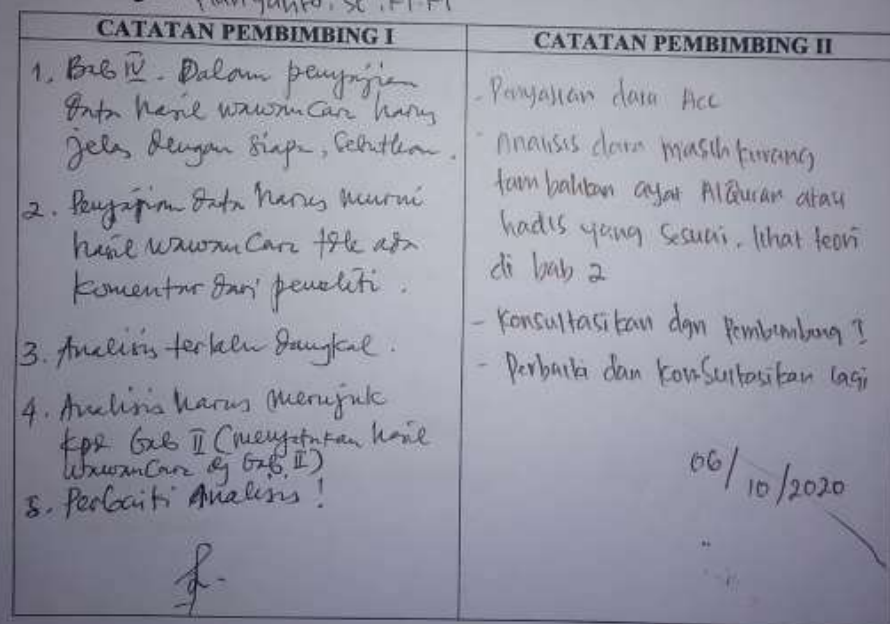 CATATAN PEMBIMBING I
1. Bab IV. Dalam penyajian
data hasil wawancara harus
jelas dengan siapa, sebutkan.
2. Penyajian data harus murni
hasil wawancara tdk ada
komentar dari peneliti.
3. Analisis terlalu dangkal.
4. Analisis harus merujuk
kpd Bab II (menyatukan hasil
wawancara dg Bab II)
5. Perbaiki Analisis!
CATATAN PEMBIMBING II
- Penyajian data Acc
- Analisis data masih kurang
tambahkan ayat AlQuran atau
hadis yang sesuai. lihat teori
di bab 2
- Konsultasikan dgn Pembimbing I
- Perbaiki dan konsultasikan lagi
06/10/2020